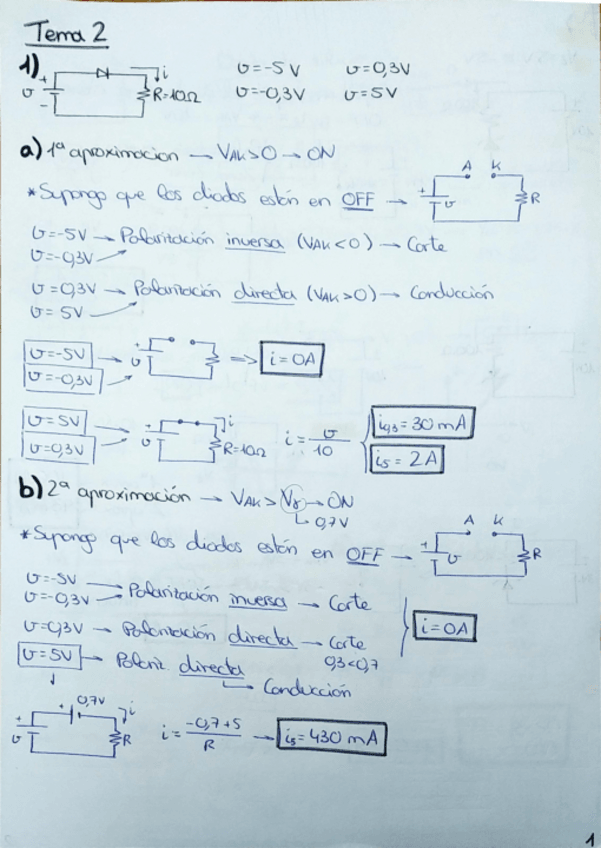 Tema 2
1) + υ - i R=10Ω υ=-5V υ=0,3V
υ=-0,3V υ=5V
a) 1ª aproximacion → VAK>0 → ON
*Supongo que los diodos están en OFF → + υ A K R
υ=-5V → Polarización inversa (VAK<0) → Corte
υ=-0,3V
υ=0,3V → Polarización directa (VAK>0) → Conducción
υ=5V
υ=-5V → + υ ⇒ i=0A
υ=-0,3V
υ=5V → + υ i R=10Ω i=υ/10 { i0,3=30 mA
υ=0,3V i5=2A
b) 2ª aproximación → VAK>Vγ → ON
↳ 0,7V
*Supongo que los diodos están en OFF → + υ A K R
υ=-5V → Polarización inversa → Corte
υ=-0,3V
υ=0,3V → Polarización directa → Corte } i=0A
0,3<0,7
υ=5V → Polariz. directa
↳ Conducción
+ υ + 0,7V i R i=-0,7+5/R → i5=430 mA
1